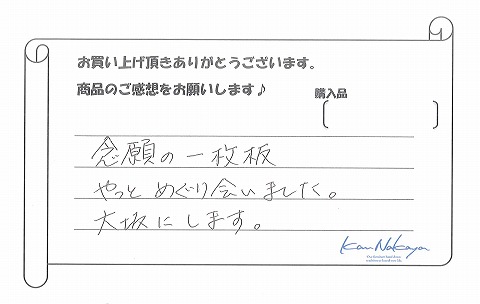 お買い上げ頂きありがとうございます。
商品のご感想をお願いします♪
購入品
念願の一枚板
やっとめぐり会いました。
大坂にします。
Kan Nakaya